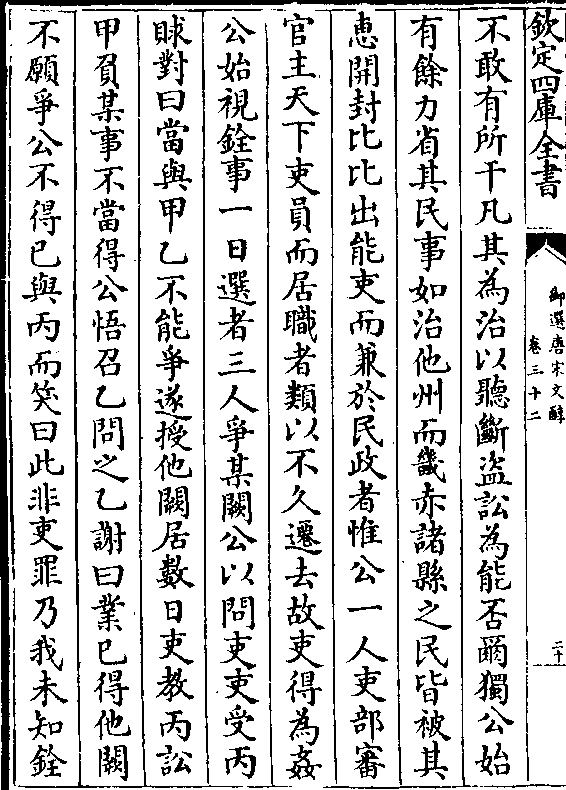 欽定四庫全書
御選唐宋文醇
卷三十二
二十
不敢有所干凡其為治以聽斷盗訟為能否爾獨公始
有餘力省其民事如治他州而畿赤諸縣之民皆被其
恵開封比比出能吏而兼於民政者惟公一人吏部審
官主天下吏員而居職者類以不久遷去故吏得為姦
公始視銓事一日選者三人爭某闕公以問吏吏受丙
賕對曰當與甲乙不能爭遂授他闕居數日吏教丙訟
甲負某事不當得公悟召乙問之乙謝曰業已得他闕
不願爭公不得已與丙而笑曰此非吏罪乃我未知銓